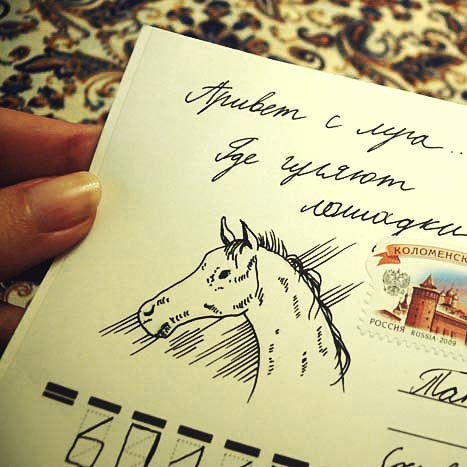 Привет с луга...
Где гуляют
лошадки
КОЛОМЕНСК
РОССИЯ RUSSIA 2009